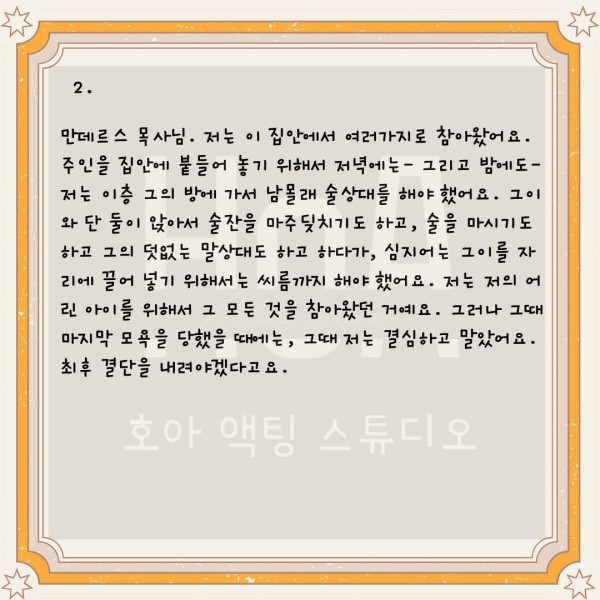 2.
만데르스 목사님. 저는 이 집안에서 여러가지로 참아왔어요.
주인을 집안에 붙들어 놓기 위해서 저녁에는- 그리고 밤에도-
저는 이층 그의 방에 가서 남몰래 술상대를 해야 했어요. 그이
와 단 둘이 앉아서 술잔을 마주딪치기도 하고, 술을 마시기도
하고 그의 덧없는 말상대도 하고 하다가, 심지어는 그이를 자
리에 끌어 넣기 위해서는 씨름까지 해야 했어요. 저는 저의 어
린 아이를 위해서 그 모든 것을 참아왔던 거예요. 그러나 그때
마지막 모욕을 당했을 때에는, 그때 저는 결심하고 말았어요.
최후 결단을 내려야겠다고요.
HoA
HoA
호아 액팅 스튜디오